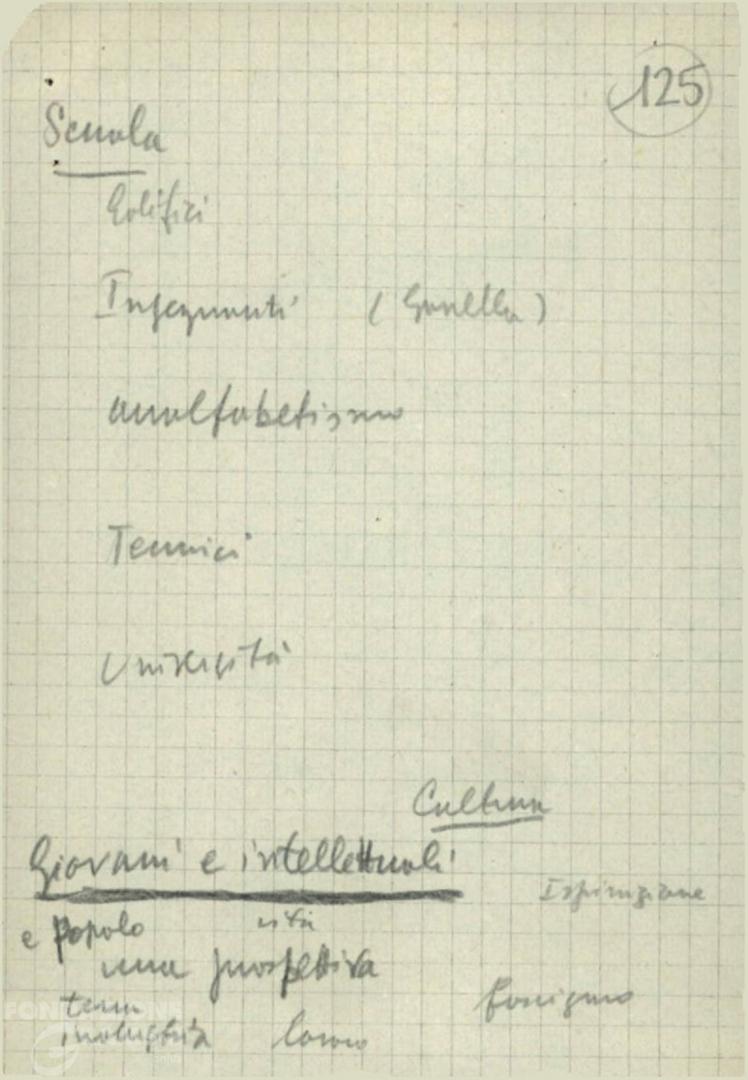 125
Scuola
Edifici
Insegnanti (Gonella)
analfabetismo
Tecnici
Università
Cultura
Giovani e intellettuali
Ispirazione
e popolo vita
una prospettiva
fascismo
terra
industria lavoro